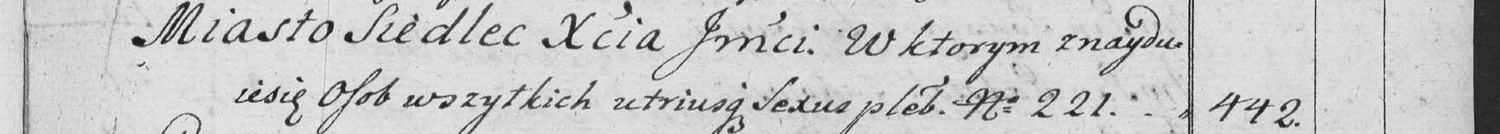 Miasto Siedlec Xcia Jmći. W ktorym znaydu-
ie się Osob wszytkich utriusq Sexus pleb. No 221. . , 442.